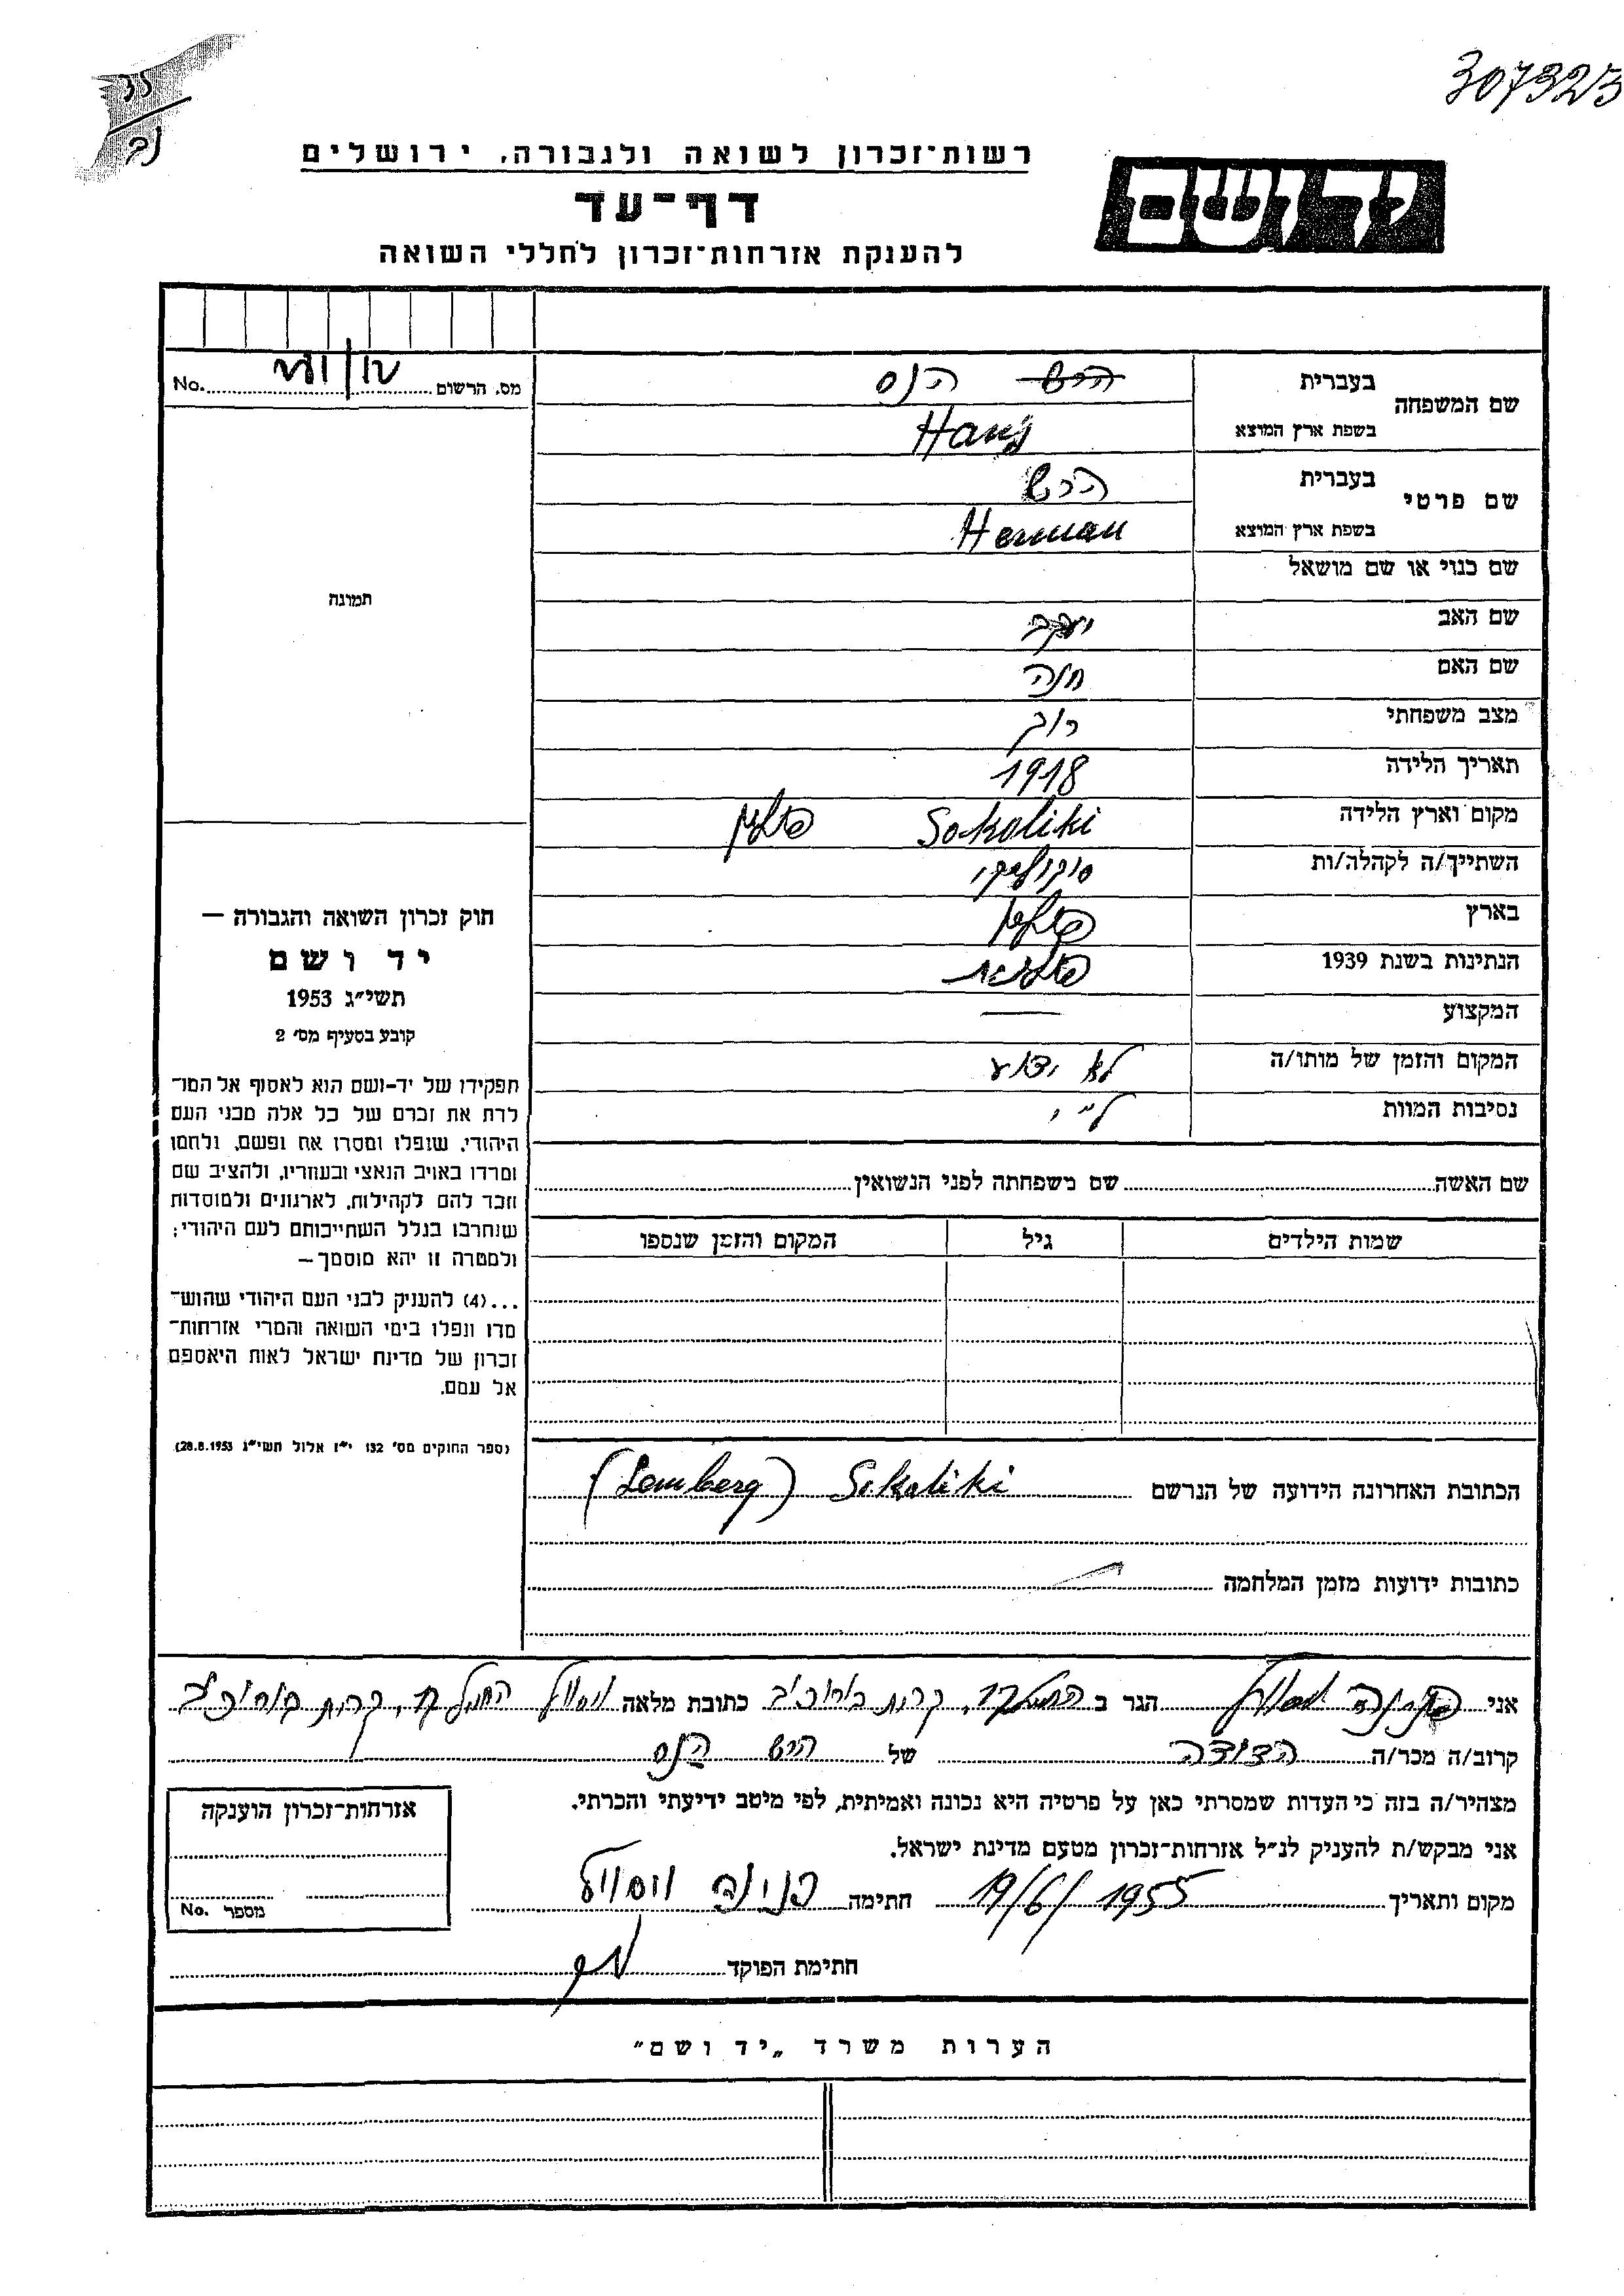 307323
רשות־זכרון לשואה ולגבורה, ירושלים
דף־עד
להענקת אזרחות־זכרון לחללי השואה
יד ושם
מס. הרשום No.
שם המשפחה בעברית הירש הנס
בשפת ארץ המוצא Hans
שם פרטי בעברית הירש
בשפת ארץ המוצא Herman
שם כנוי או שם מושאל
תמונה
שם האב יעקב
שם האם חנה
מצב משפחתי רוק
תאריך הלידה 1918
מקום וארץ הלידה Sokoliki פולין
השתייך/ה לקהלה/ות סוקוליקי
בארץ פולין
הנתינות בשנת 1939 פולנית
המקצוע —
המקום והזמן של מותו/ה לא ידוע
נסיבות המוות ל״י
חוק זכרון השואה והגבורה —
יד ושם
תשי״ג 1953
קובע בסעיף מס׳ 2
תפקידו של יד-ושם הוא לאסוף אל המו־
לדת את זכרם של כל אלה מבני העם
היהודי, שנפלו ומסרו את נפשם, נלחמו
ומרדו באויב הנאצי ובעוזריו, ולהציב שם
וזכר להם לקהילות, לארגונים ולמוסדות
שנחרבו בגלל השתייכותם לעם היהודי;
ולמטרה זו יהא מוסמך —
...(4) להעניק לבני העם היהודי שהוש־
מדו ונפלו בימי השואה והמרי אזרחות־
זכרון של מדינת ישראל לאות היאספם
אל עמם.
(ספר החוקים מס׳ 132 י״ז אלול תשי״ג 28.8.1953)
שם האשה שם משפחתה לפני הנשואין
שמות הילדים גיל המקום והזמן שנספו
הכתובת האחרונה הידועה של הנרשם Sokoliki (Lemberg)
כתובות ידועות מזמן המלחמה
אני פנינה הגר ב קרית כתובת מלאה קרית
קרוב/ה מכר/ה הדודה של הירש הנס
מצהיר/ה בזה כי העדות שמסרתי כאן על פרטיה היא נכונה ואמיתית, לפי מיטב ידיעתי והכרתי.
אני מבקש/ת להעניק לנ״ל אזרחות־זכרון מטעם מדינת ישראל.
מקום ותאריך 19/6/1955 חתימה פנינה
חתימת הפוקד
אזרחות־זכרון הוענקה
מספר No.
הערות משרד „יד ושם״